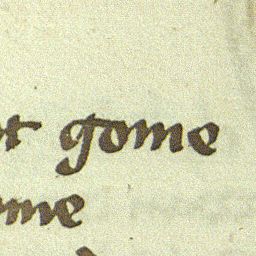 t gome
me